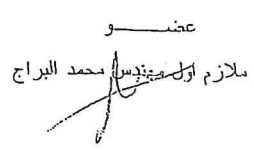 عضـــــو
ملازم اول مهندس محمد البراج